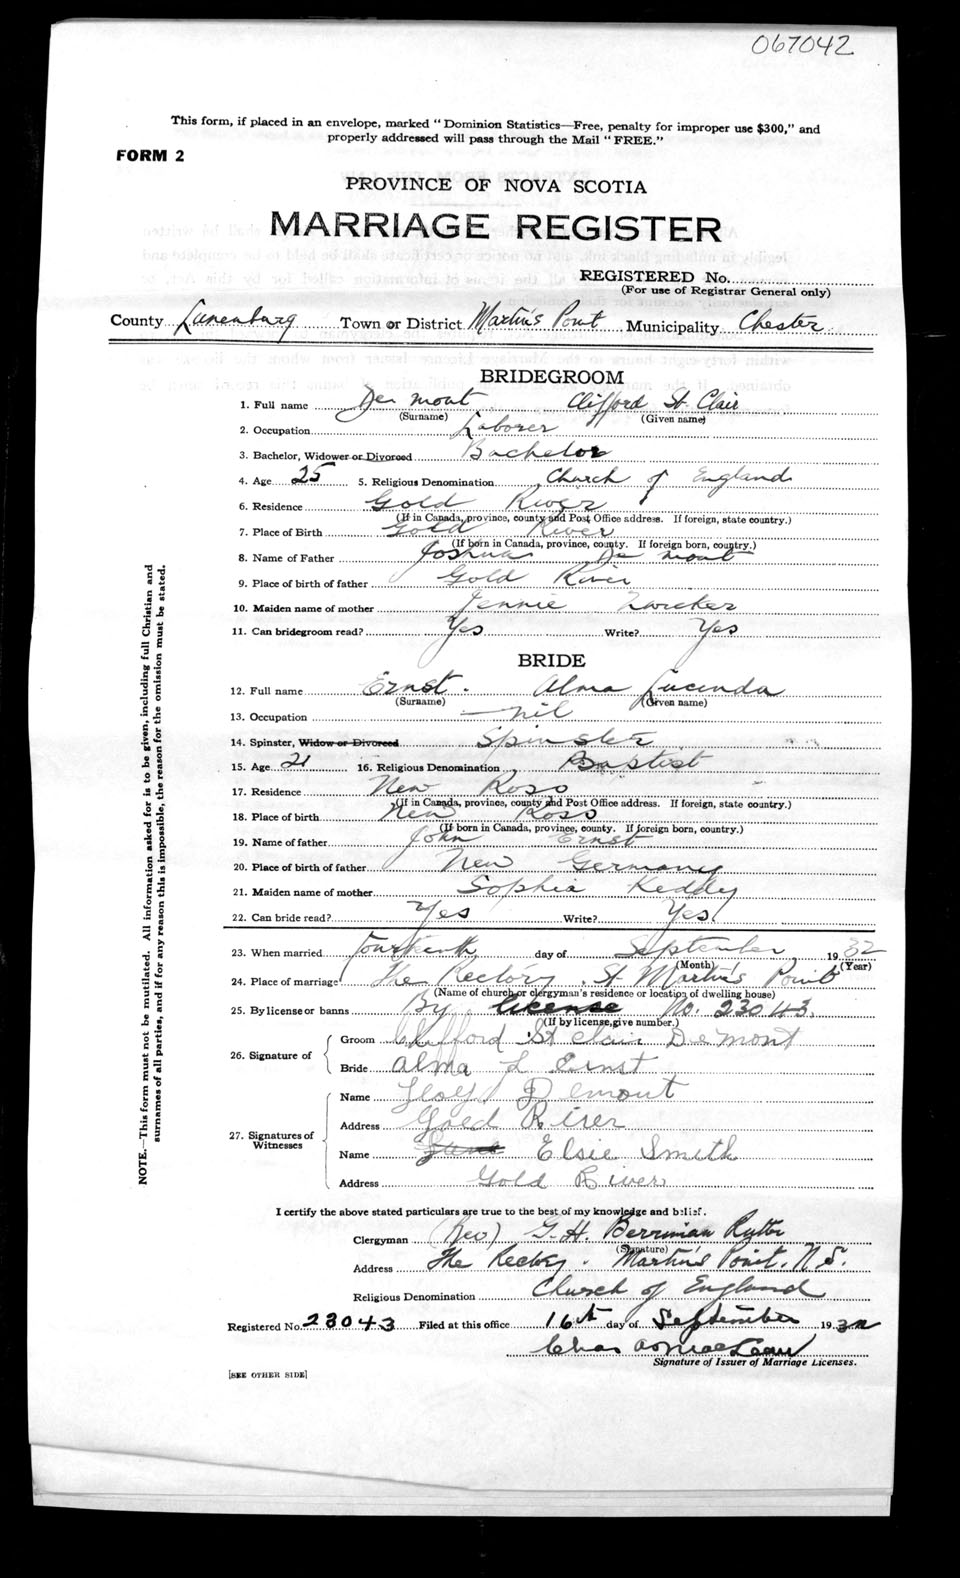 067042
This form, if placed in an envelope, marked " Dominion Statistics—Free, penalty for improper use $300," and
properly addressed will pass through the Mail " FREE."
FORM 2
PROVINCE OF NOVA SCOTIA
MARRIAGE REGISTER
REGISTERED No.
(For use of Registrar General only)
County Lunenburg Town or District Martin's Point Municipality Chester
BRIDEGROOM
1. Full name De mont Clifford St. Clair
(Surname) (Given name)
2. Occupation Laborer
3. Bachelor, Widower or Divorced Bachelor
4. Age 25 5. Religious Denomination Church of England
6. Residence Gold River
(If in Canada, province, county and Post Office address. If foreign, state country.)
7. Place of Birth Gold River
(If born in Canada, province, county. If foreign born, country.)
8. Name of Father Joshua De mont
9. Place of birth of father Gold River
10. Maiden name of mother Jennie Zwicker
11. Can bridegroom read? Yes Write? Yes
BRIDE
12. Full name Ernst. Alma Lucenda
(Surname) (Given name)
13. Occupation nil
14. Spinster, Widow or Divorced Spinster
15. Age 21 16. Religious Denomination Baptist
17. Residence New Ross
(If in Canada, province, county and Post Office address. If foreign, state country.)
18. Place of birth New Ross
(If born in Canada, province, county. If foreign born, country.)
19. Name of father John Ernst
20. Place of birth of father New Germany
21. Maiden name of mother Sophia Keddy
22. Can bride read? Yes Write? Yes
23. When married Fourteenth day of September 1932
(Month) (Year)
24. Place of marriage The Rectory, St Martin's Point
(Name of church or clergyman's residence or location of dwelling house)
25. By license or banns By license No. 23043.
(If by license, give number.)
26. Signature of
Groom Clifford St Clair DeMont
Bride Alma L Ernst
27. Signatures of
Witnesses
Name Floyd Demont
Address Gold River
Name Elsie Smith
Address Gold River
I certify the above stated particulars are true to the best of my knowledge and belief.
Clergyman (Rev) G. H. Berriman Rutter
(Signature)
Address The Rectory. Martin's Point. N.S.
Religious Denomination Church of England
Registered No. 23043 Filed at this office 16th day of September 1932
Chas A MacLean
Signature of Issuer of Marriage Licenses.
[SEE OTHER SIDE]
NOTE.—This form must not be mutilated. All information asked for is to be given, including full Christian and
surnames of all parties, and if for any reason this is impossible, the reason for the omission must be stated.